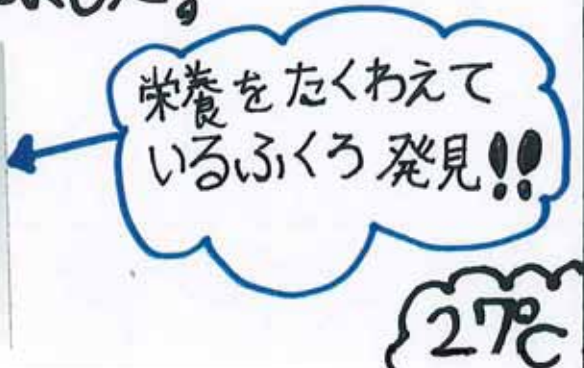 ました。
栄養をたくわえて
いるふくろ発見!!
27℃